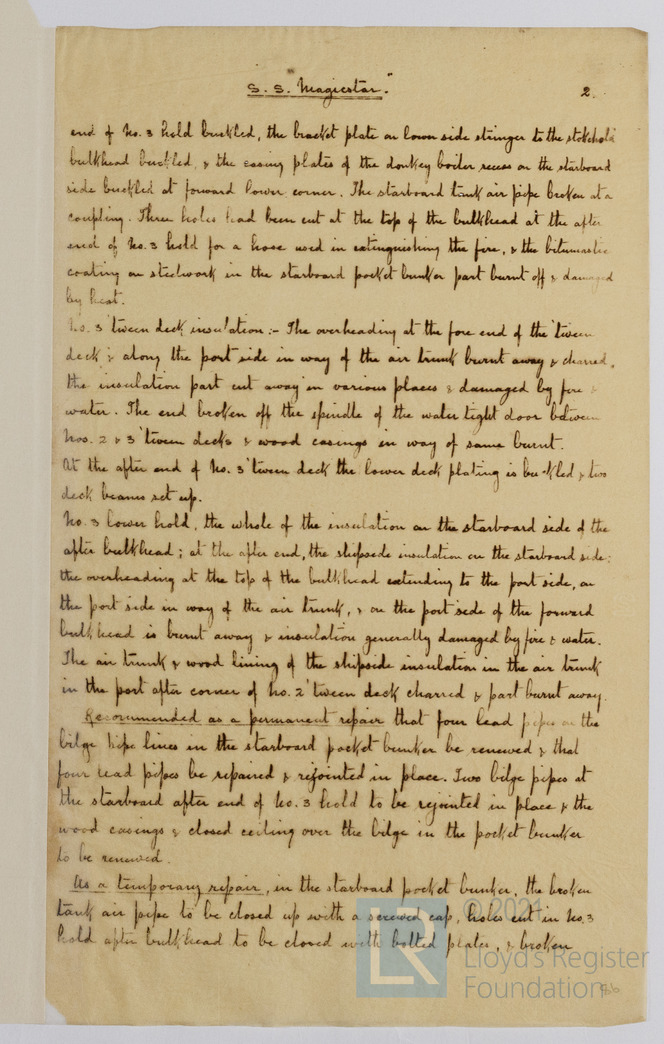 S. S. Magicstar."
2.
end of No. 3 hold buckled, the bracket plate on lower side stringer to the stokehold
bulkhead buckled, & the casing plates of the donkey boiler recess on the starboard
side buckled at forward lower corner. The starboard tank air pipe broken at a
coupling. Three holes had been cut at the top of the bulkhead at the after
end of No. 3 hold for a hose used in extinguishing the fire, & the bitumastic
coating on steelwork in the starboard pocket bunker part burnt off & damaged
by heat.
No. 3 'tween deck insulation:- The overheading at the fore end of the 'tween
deck & along the port side in way of the air trunk burnt away & charred,
the insulation part cut away in various places & damaged by fire &
water. The end broken off the spindle of the water tight door between
Nos. 2 & 3 'tween decks & wood casings in way of same burnt.
At the after end of No. 3 'tween deck the lower deck plating is buckled & two
deck beams set up.
No. 3 lower hold, the whole of the insulation on the starboard side of the
after bulkhead; at the after end, the shipside insulation on the starboard side:
the overheading at the top of the bulkhead extending to the port side, on
the port side in way of the air trunk, & on the port side of the forward
bulkhead is burnt away & insulation generally damaged by fire & water.
The air trunk & wood lining of the shipside insulation in the air trunk
in the port after corner of No. 2 'tween deck charred & part burnt away.
Recommended as a permanent repair that four lead pipes on the
bilge pipe lines in the starboard pocket bunker be renewed & that
four lead pipes be repaired & rejointed in place. Two bilge pipes at
the starboard after end of No. 3 hold to be rejointed in place & the
wood casings & closed ceiling over the bilge in the pocket bunker
to be renewed.
As a temporary repair, in the starboard pocket bunker, the broken
tank air pipe to be closed up with a screwed cap, holes cut in No. 3
hold after bulkhead to be closed with bolted plates, & broken
© 2021
Lloyd's Register
Foundation